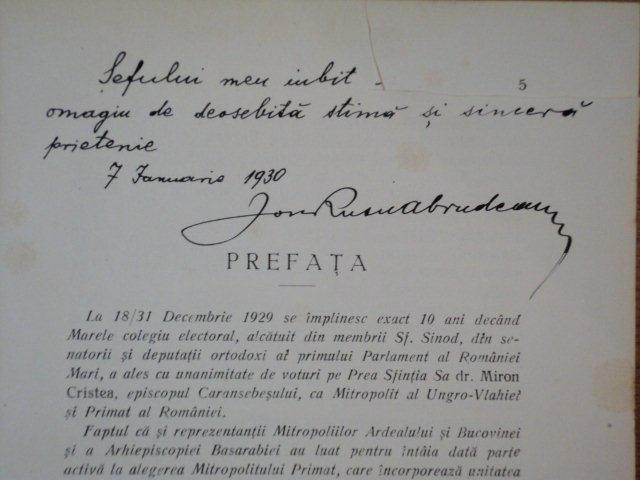 Șefului meu iubit -
5
omagiu de deosebită stimă și sinceră
prietenie
7 Ianuarie 1930
Ion Rusu Abrudeanu
PREFAȚA
La 18/31 Decembrie 1929 se împlinesc exact 10 ani decând
Marele colegiu electoral, alcătuit din membrii Sf. Sinod, din se-
natorii și deputații ortodoxi ai primului Parlament al României
Mari, a ales cu unanimitate de voturi pe Prea Sfinția Sa dr. Miron
Cristea, episcopul Caransebeșului, ca Mitropolit al Ungro-Vlahiei
și Primat al României.
Faptul că și reprezentanții Mitropoliilor Ardealului și Bucovinei
și a Arhiepiscopiei Basarabiei au luat pentru întâia dată parte
activă la alegerea Mitropolitului Primat, care încorporează unitatea